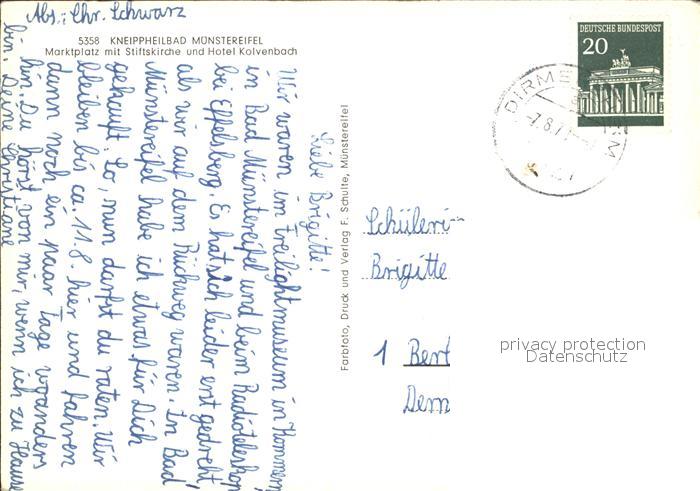 Abs.: Chr. Schwarz
5358 KNEIPPHEILBAD MÜNSTEREIFEL
Marktplatz mit Stiftskirche und Hotel Kolvenbach
Liebe Brigitte!
Wir waren im Freilightmuseum in Kommern,
in Bad Münstereifel und beim Radioteleskop
bei Effelsberg. Es hat sich leider ent gedreht,
als wir auf dem Rückweg waren. In Bad
Münstereifel habe ich etwas für Dich
gekauft. So, nun darfst du raten. Wir
bleiben bis ca 11.8. hier und fahren
dann noch ein paar Tage woanders
hin. Du hörst von mir, wenn ich zu Hause
bin. Deine Christiane
Farbfoto, Druck und Verlag F. Schulte, Münstereifel
DEUTSCHE BUNDESPOST
20
DIRME
-7.8.7
Schüleri
Brigitte
1 Berl
Dern
privacy protection
Datenschutz